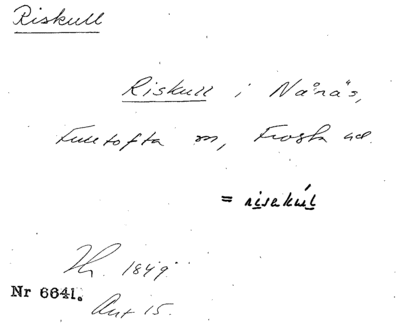 Riskull
Riskull i Nånäs,
Fulltofta sn, Frosta hd.
= risakúl
Th. 1849
Nr 6641.
Ant 15.